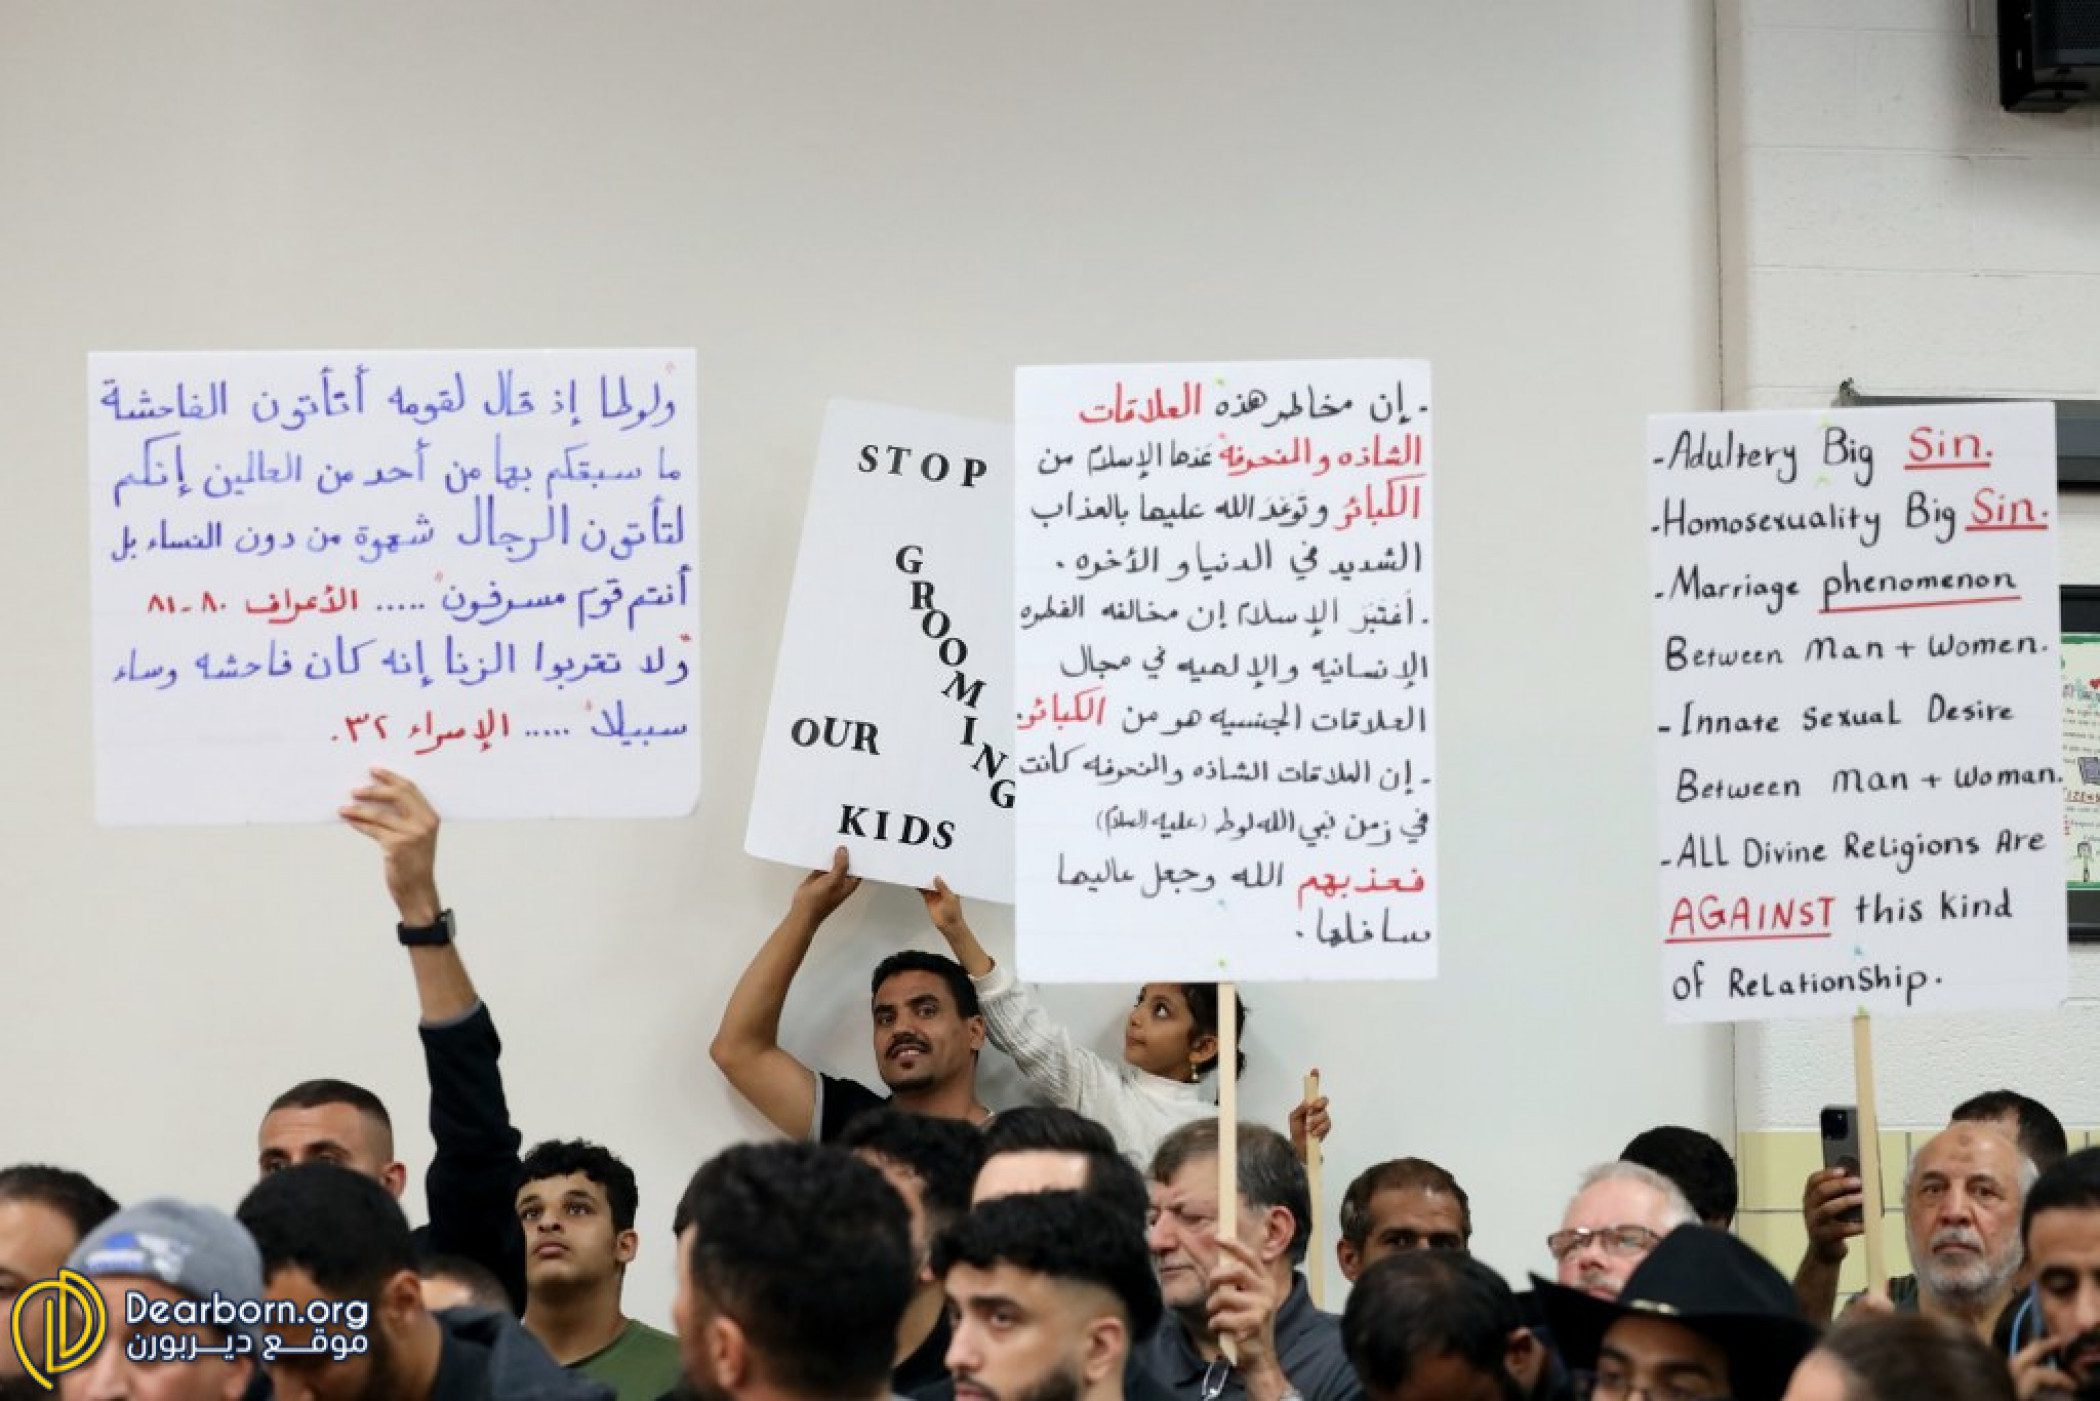 "ولوطا إذ قال لقومه أتأتون الفاحشة
ما سبقكم بها من أحد من العالمين إنكم
لتأتون الرجال شهوة من دون النساء بل
أنتم قوم مسرفون" ..... الأعراف ٨٠-٨١
"ولا تقربوا الزنا إنه كان فاحشه وساء
سبيلا" ..... الإسراء ٣٢.
STOP
GROOMING
OUR
KIDS
. إن مخاطر هذه العلاقات
الشاذه والمنحرفة عَدها الإسلام من
الكبائر وتوَعَدَ الله عليها بالعذاب
الشديد في الدنيا و الأخره .
. أعْتَبَرَ الإسلام إن مخالفه الفطره
الإنسانيه والإلهيه في مجال
العلاقات الجنسيه هو من الكبائر.
. إن العلاقات الشاذه والمنحرفه كانت
في زمن نبي الله لوط (عليه السلام)
فعذبهم الله وجعل عاليها
سافلها .
-Adultery Big Sin.
.Homosexuality Big Sin.
.Marriage phenomenon
Between Man + Women.
- Innate Sexual Desire
Between Man + Woman.
-ALL Divine Religions Are
AGAINST this kind
of Relationship.
Dearborn.org
موقع ديربورن